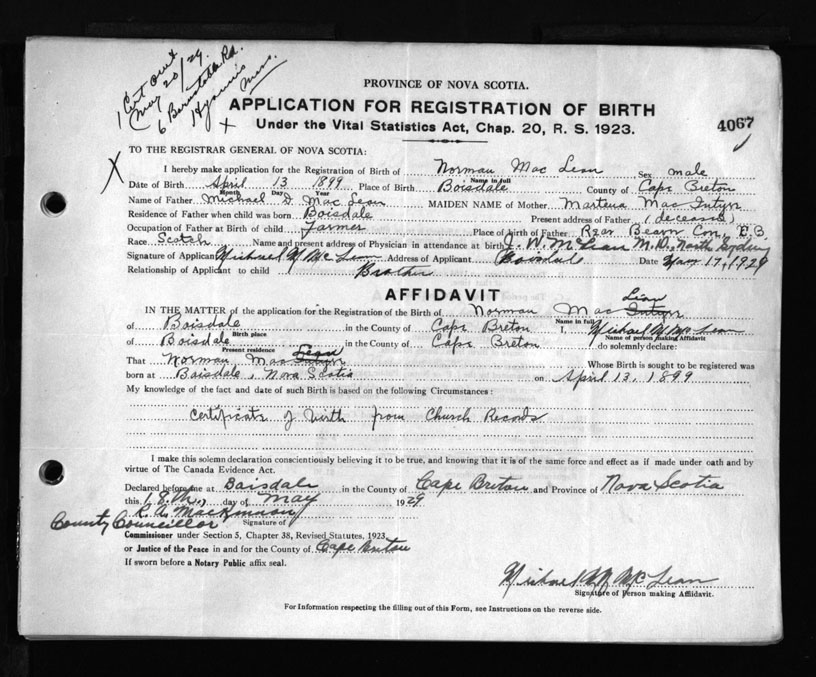 1 Cert out
May 20/29.
6 Rd.
Hyannis
Mass.
X
PROVINCE OF NOVA SCOTIA.
APPLICATION FOR REGISTRATION OF BIRTH
Under the Vital Statistics Act, Chap. 20, R. S. 1923.
4067
TO THE REGISTRAR GENERAL OF NOVA SCOTIA:
X
I hereby make application for the Registration of Birth of Norman Mac Lean Sex male
Name in full
Date of Birth April 13 1899 Place of Birth Boisdale County of Cape Breton
Month Day Year
Name of Father Michael D. Mac Lean MAIDEN NAME of Mother Mac Intyre
Residence of Father when child was born Boisdale Present address of Father (deceased)
Occupation of Father at Birth of child Farmer Place of birth of Father Rear Con., C.B.
Race Scotch Name and present address of Physician in attendance at birth J. W. McLean M.D. North Sydney
Signature of Applicant Michael McLean Address of Applicant Boisdale Date May 17, 1929
Relationship of Applicant to child Brother
AFFIDAVIT
Lean
IN THE MATTER of the application for the Registration of the Birth of Norman Mac Intyre
Name in full
of Boisdale in the County of Cape Breton I, Michael McLean
Birth place
Name of person making Affidavit
of Boisdale in the County of Cape Breton do solemnly declare:
Present residence
Lean
That Norman Mac Intyre Whose Birth is sought to be registered was
born at Boisdale, Nova Scotia on April 13, 1899
My knowledge of the fact and date of such Birth is based on the following Circumstances:
Certificate of birth from Church Records
I make this solemn declaration conscientiously believing it to be true, and knowing that it is of the same force and effect as if made under oath and by
virtue of The Canada Evidence Act.
Declared before me at Boisdale in the County of Cape Breton and Province of Nova Scotia
this 18th, day of May 1929
R. A. MacKinnon
County Councillor Signature of
Commissioner under Section 5, Chapter 38, Revised Statutes, 1923,
or Justice of the Peace in and for the County of Cape Breton
If sworn before a Notary Public affix seal.
Michael McLean
Signature of Person making Affidavit.
For Information respecting the filling out of this Form, see Instructions on the reverse side.